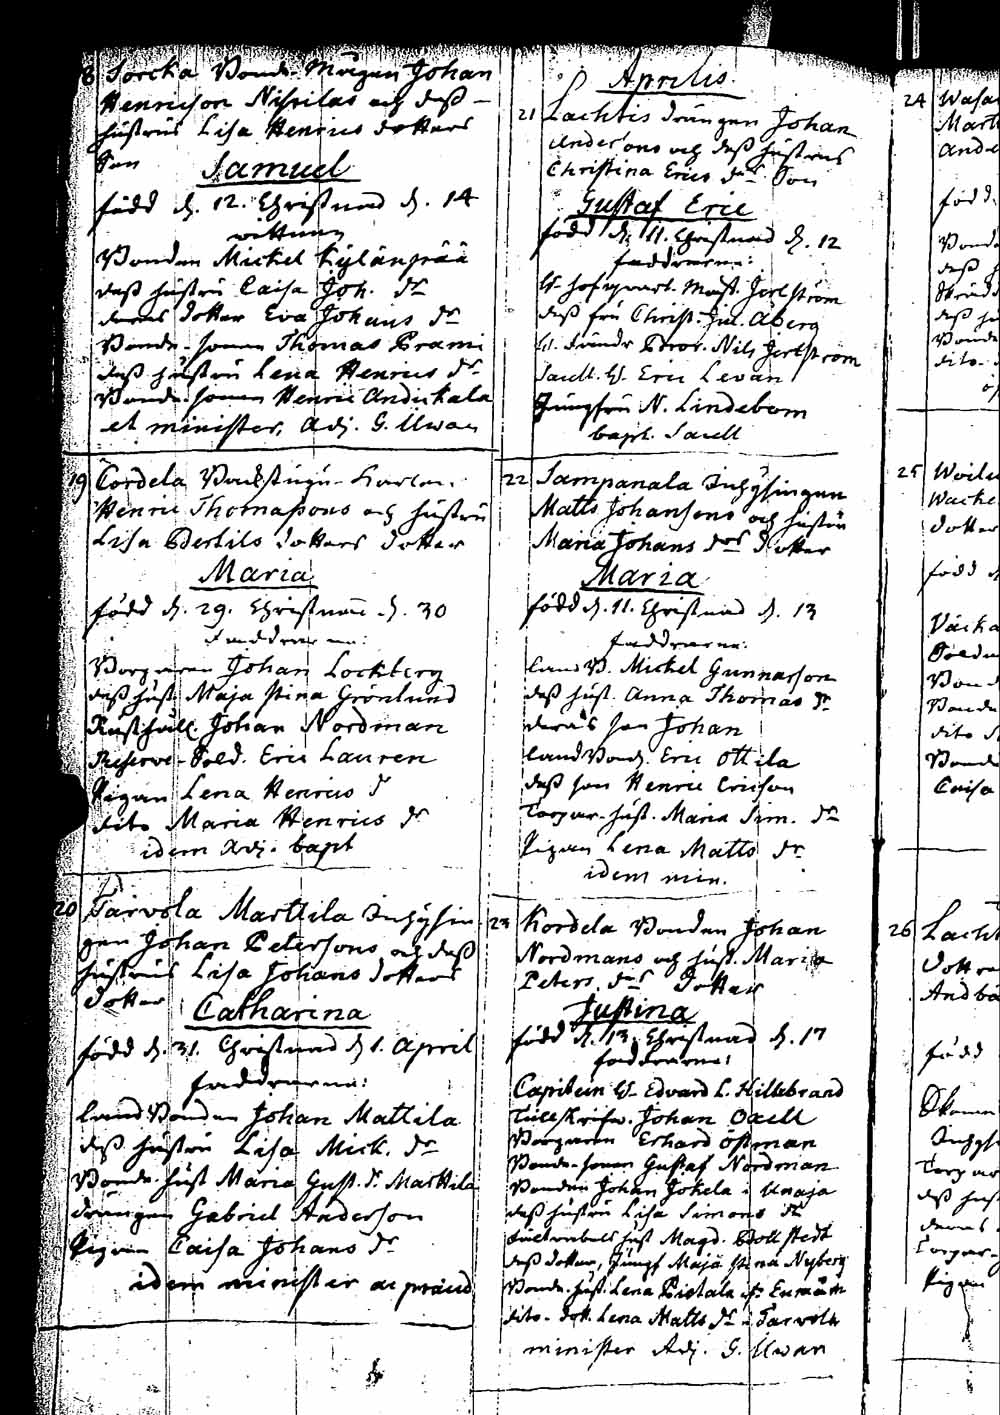 8 Sorcka Bonde-Mågen Johan
Henricson Nissilas och dess
hustrus Lisa Henrics dotters
Son
Samuel
född d. 12. Christnad d. 14
vittnen
Bonden Mickel Kylänpää
dess hustru Caisa Joh. dr
deras dotter Eva Johans dr
Bonde-sonen Thomas Prami
dess hustru Lena Henrics dr
Bonde-sonen Henric Andickala
et minister, Adj. G. Uwan
19 Cordela
Henric Thomassons och hustru
Lisa Bertils dotters dotter
Maria
född d. 29. Christnad d. 30
Faddrarne:
Borgaren Johan Lockberg
dess hust. Maja Stina Grönlund
Rusthåll. Johan Nordman
Reserve-Sold. Eric Lauren
Pigan Lena Henrics d
dito Maria Henrics dr
idem Adj. bapt
20 Tarvola Marttila Inhysin
gen Johan Petersons och dess
hustrus Lisa Johans dotters
dotter
Catharina
född d. 31. Christnad d 1. April
faddrarne:
Landbonden Johan Mattila
dess hustru Lisa Mick. dr
Bonde-hust Maria Gust. dr Marttila
drängen Gabriel Anderson
Pigan Caisa Johans dr
idem minister ac præced
Aprilis.
21 Lachtis drängen Johan
Anders'ons och dess hustrus
Christina Erics drs Son
Gustaf Eric
född d. 11. Christnad d. 12
faddrarne:
Hr hofqvart. Mäst. Jerlström
dess fru Christ. Jul. Åberg
Nils Jerlström
Eric Levan
Jungfru N. Lindebom
bapt. Sacell
22 Sampanala Inhysingen
Matts Johansons och hustru
Maria Johans drs dotter
Maria
född d. 11. Christnad d. 13
faddrarne:
Land B. Mickel Gunnarson
dess hust. Anna Thomas dr
deras son Johan
Land Bond. Eric Ottila
dess son Henric Ericson
Torpar-hust. Maria Sim. dr
Pigan Lena Matts dr
idem min.
23 Kordela Bonden Johan
Nordmans och hust. Maria
Peters drs Dotter
Justina
född d. 13. Christnad d. 17
faddrarne:
Capitein Hr Edvard L. Hillebrand
Tullskrifv. Johan Oxell
Borgaren Erhard Östman
Bonde-sonen Gustaf Nordman
Bonden Johan Jokela i Unaja
dess hustru Lisa Simons dr
hust Magd. Bollstedt
dess dotter, Jungf Maja Stina Nyberg
Bonde-hust. Lena Pietala
dito-dott. Lena Matts dr i Tarvola
minister Adj. G. Uwan
24
Mart
Ande
född
Bond
dess
dess
Bonde
dito.
25
dotter
född d
Bonde
dito
Bonde
Caisa
26 Lacht
dotter
född
Inhys
Torpar
dess hust
deras
Torpar-
Pigan